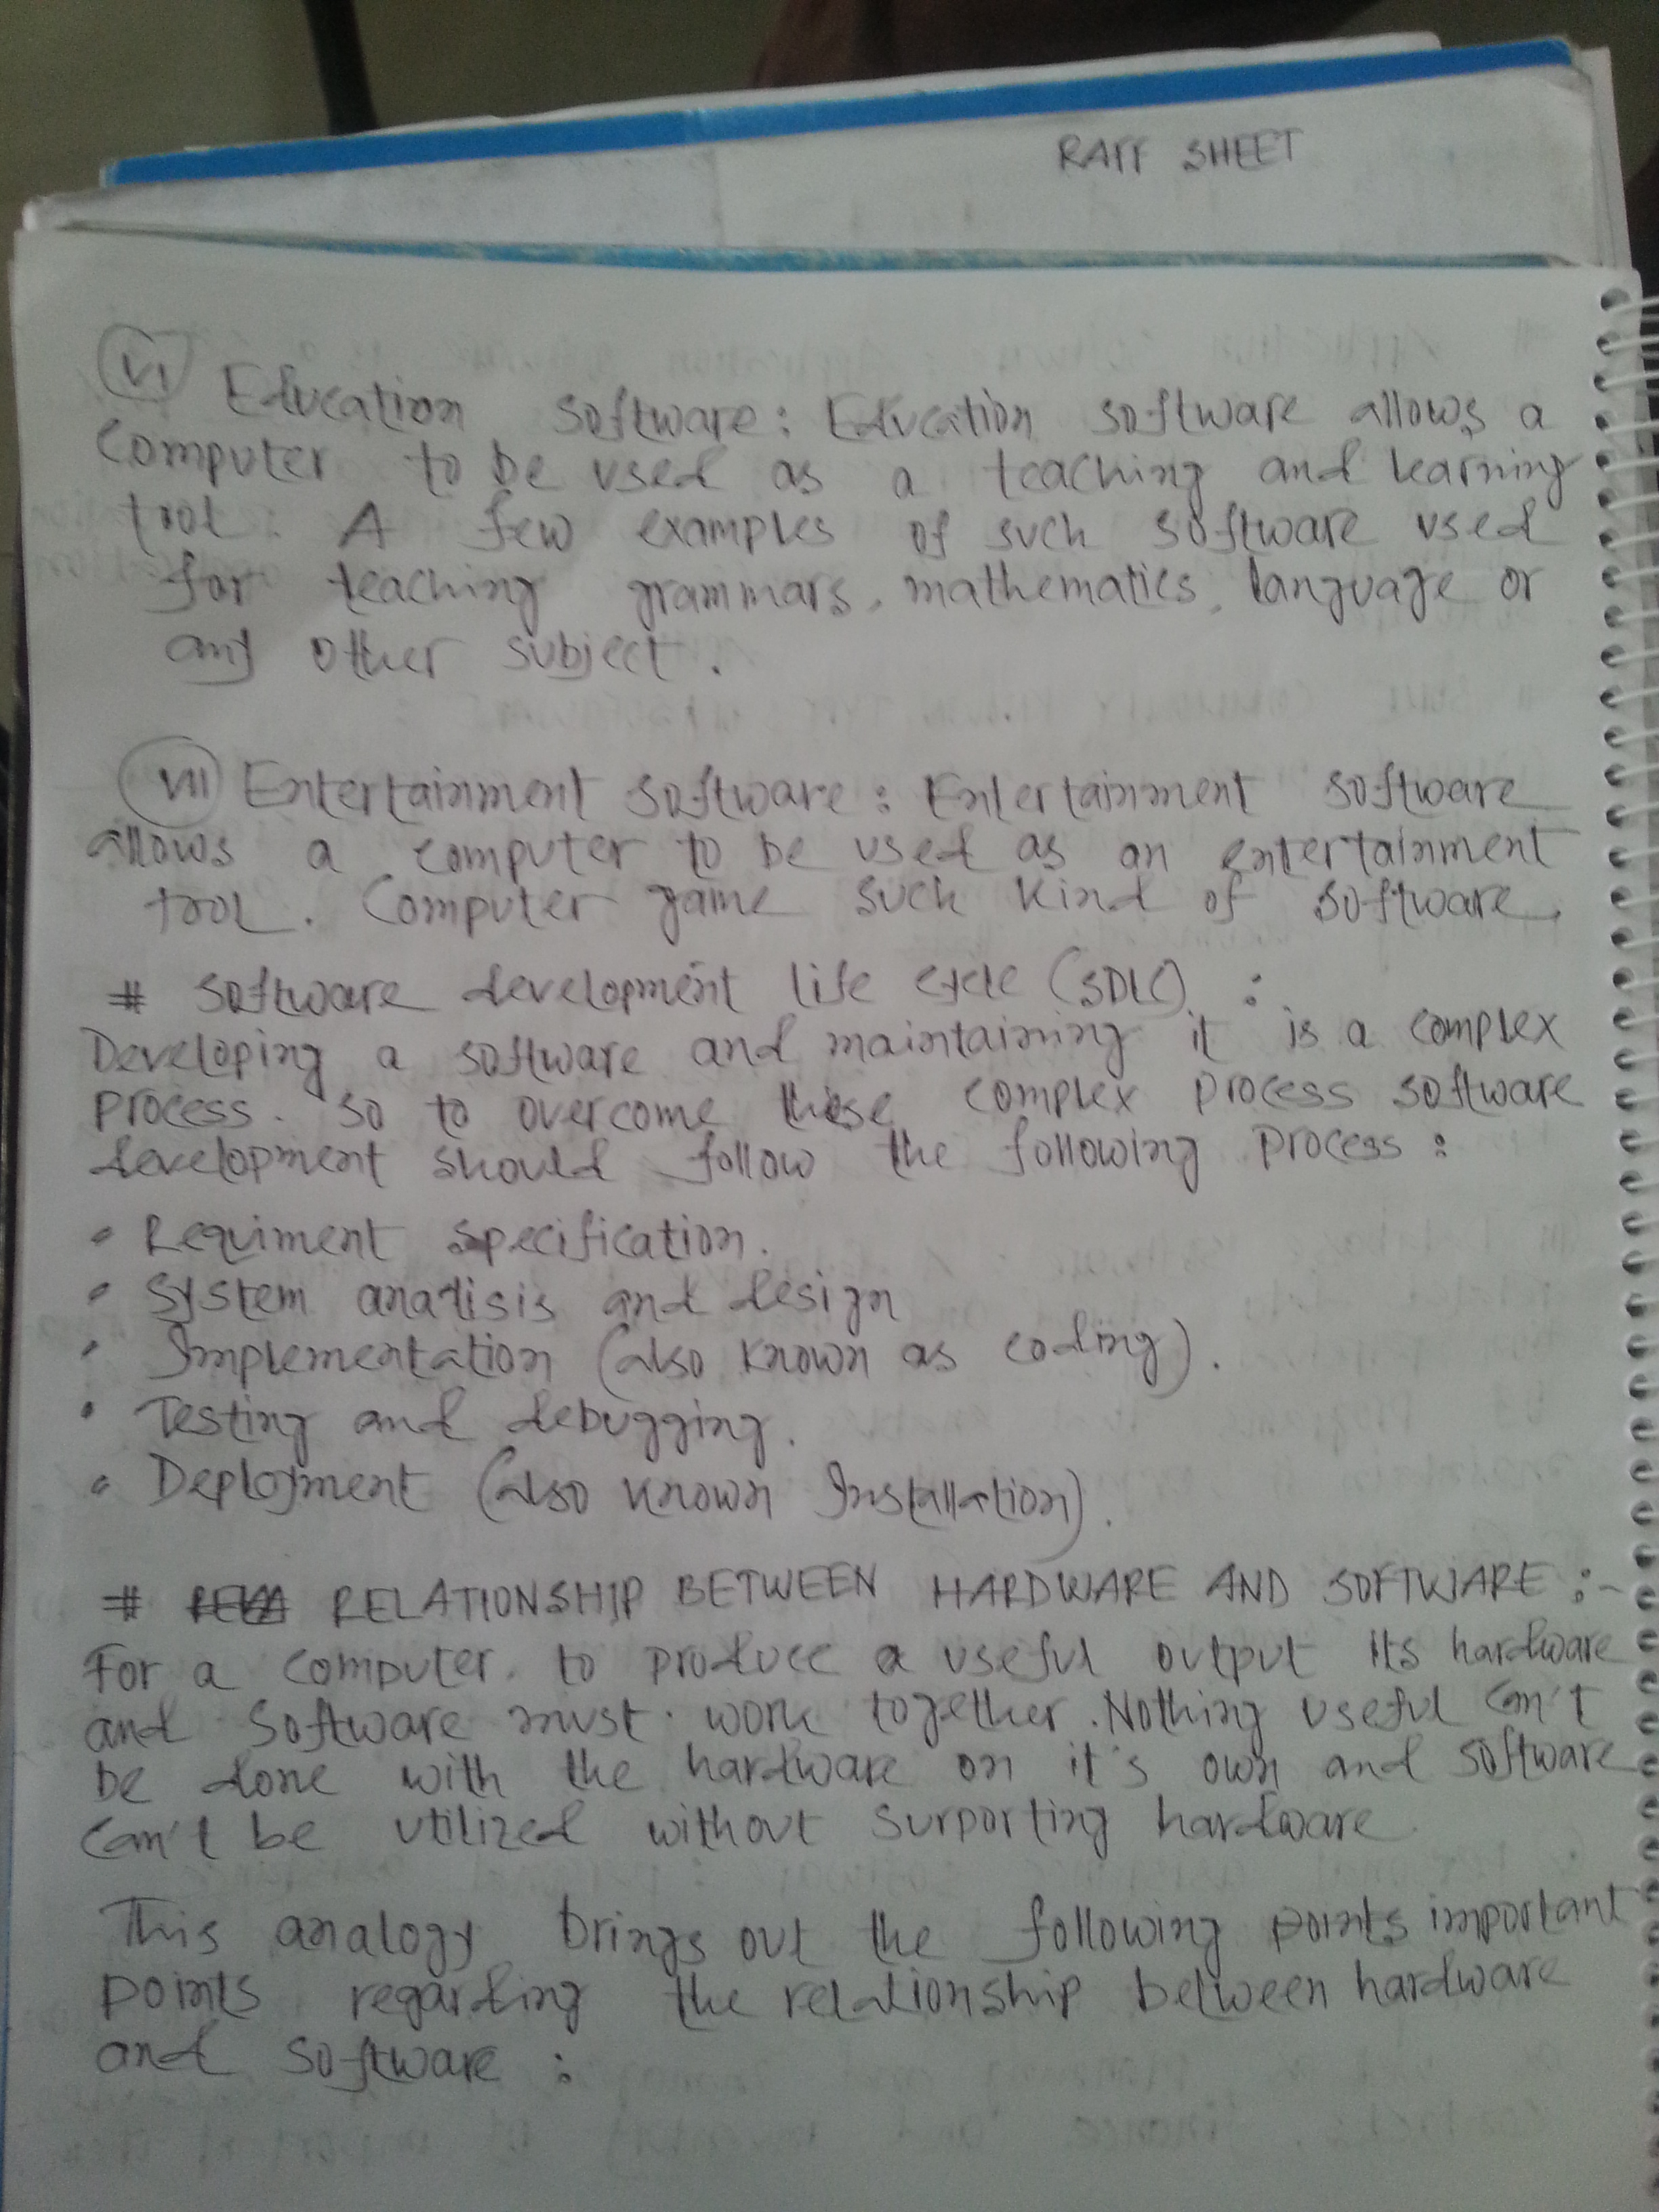 RAFF SHEET
VI Education software: Education software allows a
computer to be used as a teaching and learning
tool. A few examples of such software used
for teaching grammars, mathematics, language or
any other subject.
VII Entertainment software: Entertainment software
allows a computer to be used as an entertainment
tool. Computer game such kind of software.
# software development life cycle (SDLC) :
Developing a software and maintaining it is a complex
process. so to overcome these complex process software
development should follow the following process :
• Requiment specification.
• System analisis and design
• Implementation (also known as coding).
• Testing and debugging.
• Deployment (also known Installation).
# RELATIONSHIP BETWEEN HARDWARE AND SOFTWARE :-
For a computer to produce a useful output its hardware
and software must work together. Nothing useful can't
be done with the hardware on it's own and software
can't be utilized without surporting hardware
This analogy brings out the following points important
points regarding the relationship between hardware
and software :